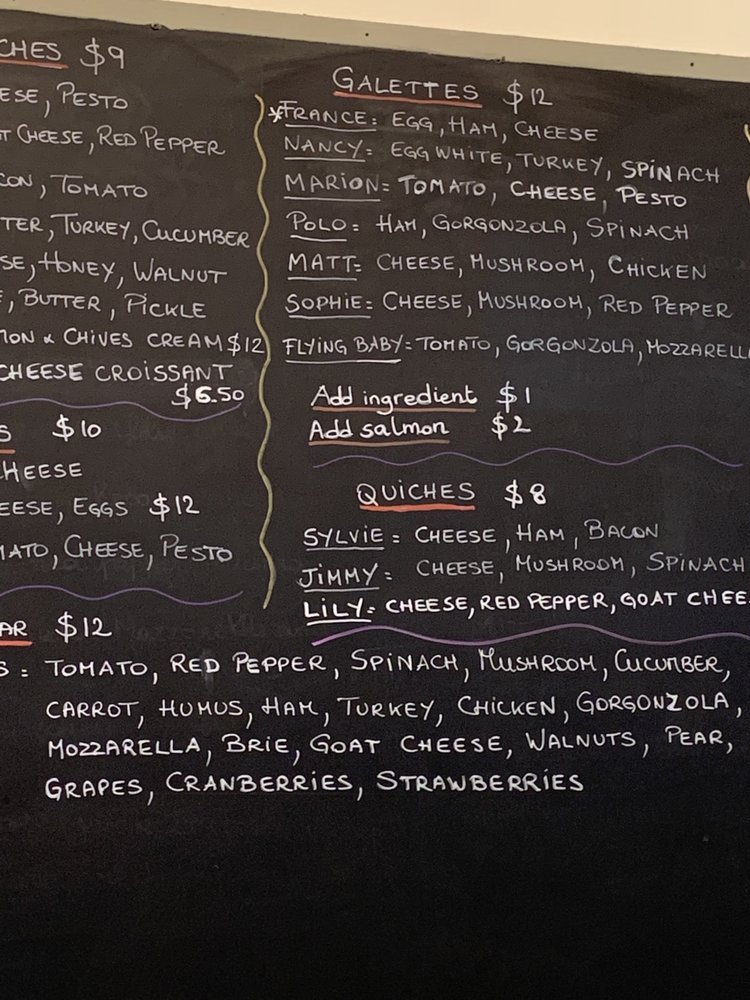 CHES $9
ESE, PESTO
T CHEESE, RED PEPPER
CON, TOMATO
TER, TURKEY, CUCUMBER
SE, HONEY, WALNUT
E, BUTTER, PICKLE
MON & CHIVES CREAM $12
CHEESE CROISSANT
$6.50
S $10
CHEESE
EESE, EGGS $12
MATO, CHEESE, PESTO
GALETTES $12
*FRANCE: EGG, HAM, CHEESE
NANCY: EGG WHITE, TURKEY, SPINACH
MARION: TOMATO, CHEESE, PESTO
POLO: HAM, GORGONZOLA, SPINACH
MATT: CHEESE, MUSHROOM, CHICKEN
SOPHIE: CHEESE, MUSHROOM, RED PEPPER
FLYING BABY: TOMATO, GORGONZOLA, MOZZARELL
Add ingredient $1
Add salmon $2
QUICHES $8
SYLVIE: CHEESE, HAM, BACON
JIMMY: CHEESE, MUSHROOM, SPINACH
LILY: CHEESE, RED PEPPER, GOAT CHEE
AR $12
S: TOMATO, RED PEPPER, SPINACH, MUSHROOM, CUCUMBER,
CARROT, HUMUS, HAM, TURKEY, CHICKEN, GORGONZOLA,
MOZZARELLA, BRIE, GOAT CHEESE, WALNUTS, PEAR,
GRAPES, CRANBERRIES, STRAWBERRIES